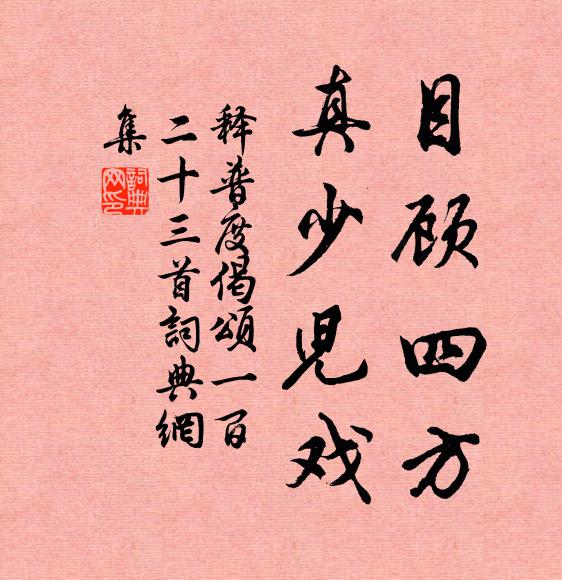 目顾四方
真少児戏
释普度偈頌一百
二十三首詞典網
集
詞典
网印